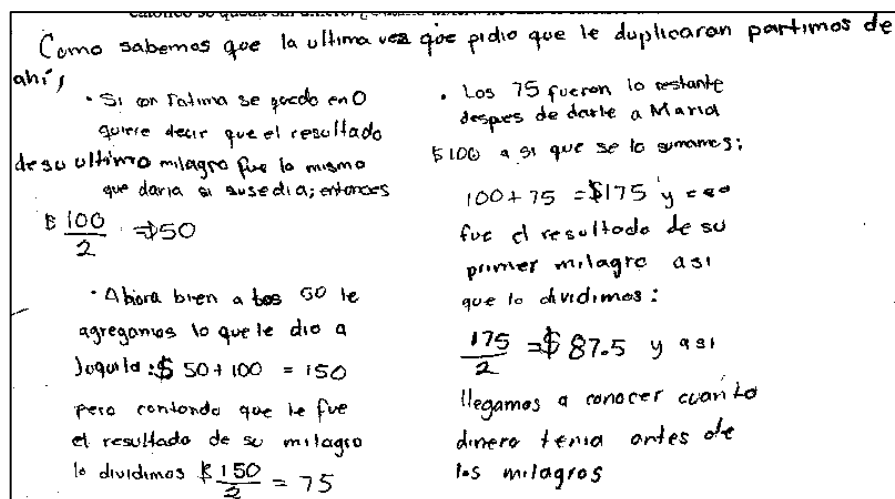 Como sabemos que la ultima vez que pidio que le duplicaran partimos de
ahí,
· Si con Fatima se quedo en 0
quiere decir que el resultado
de su ultimo milagro fue lo mismo
que daria si susedia; entonces
$ 100/2 => 50
· Ahora bien a los 50 le
agregamos lo que le dio a
Joquila: $ 50 + 100 = 150
pero contando que le fue
el resultado de su milagro
lo dividimos $ 150/2 = 75
· Los 75 fueron lo restante
despues de darle a Maria
$100 a si que se lo sumamos;
100 + 75 = $175 y eso
fue el resultado de su
primer milagro asi
que lo dividimos:
175/2 = $ 87.5 y asi
llegamos a conocer cuanto
dinero tenia antes de
los milagros